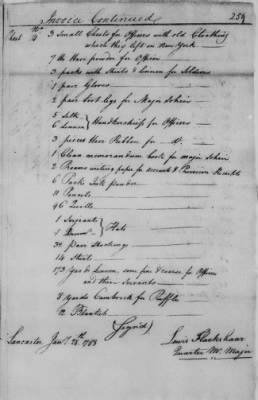 Invoice Continued
259
Chest No 4 3 Small Chests for Officers with old Cloathing
which they left on New York
7 lb Hair powder for Officers
3 packs with Shirts & Linnen for Soldiers
1 pair Gloves
2 pair boot legs for Major Schein
5 Silk
6 Linnen } Handkerchiefs for Officers
3 pieces Hair Ribbon for Do
1 Clean memorandum book for major Schein
2 Reams writing paper for &
6 Packs Ink powder
11 Pencils
96 Quills
1 Sergeants
1 } Hats
34 pair Stockings
14 Shirts
173 Yards Linnen, some fine & coarse for Officers
and their Servants
8 Yards Cambrick for Ruffles
12 Blankets
(Signed)
Lancaster Jany 28th 1783
Lewis
Quarter Mr Major